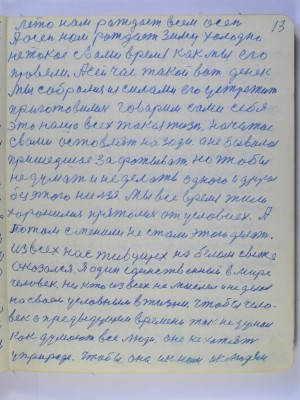 13
лето нам рождает всем осен
А осен нам рождает Зиму холодно
не такое с вами время как мы его
провели. А сейчас такой вот денек
Мы собрались и силами его
приготовились говорим сами себя
это нашо всех такая жизн, начатое
с вами оставлят на зади. а не бывало
пришедшее за
не думат и не делать одного и друго
без этого нилзя. Мы все время жили
хоронилис прятолис от условиех. А
потом с ними не стали этого делат.
Из всех нас живущих на белом свете
оказался Я один единственный в мире
человек. ни кто из всех не мыслил и не делал
на своем условиям в жизни. чтобы чело-
век в предыдущем времени так не думал
как думают все люди. они не хотят
у природе. чтобы она им к людям